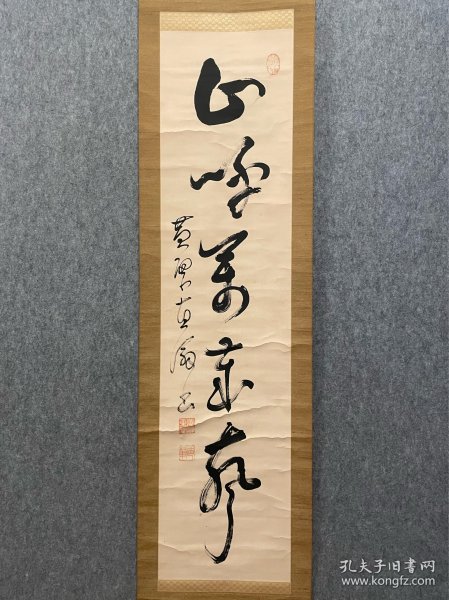 山呼萬歳声
黄檗直翁书
孔夫子旧书网
www.kongfz.com